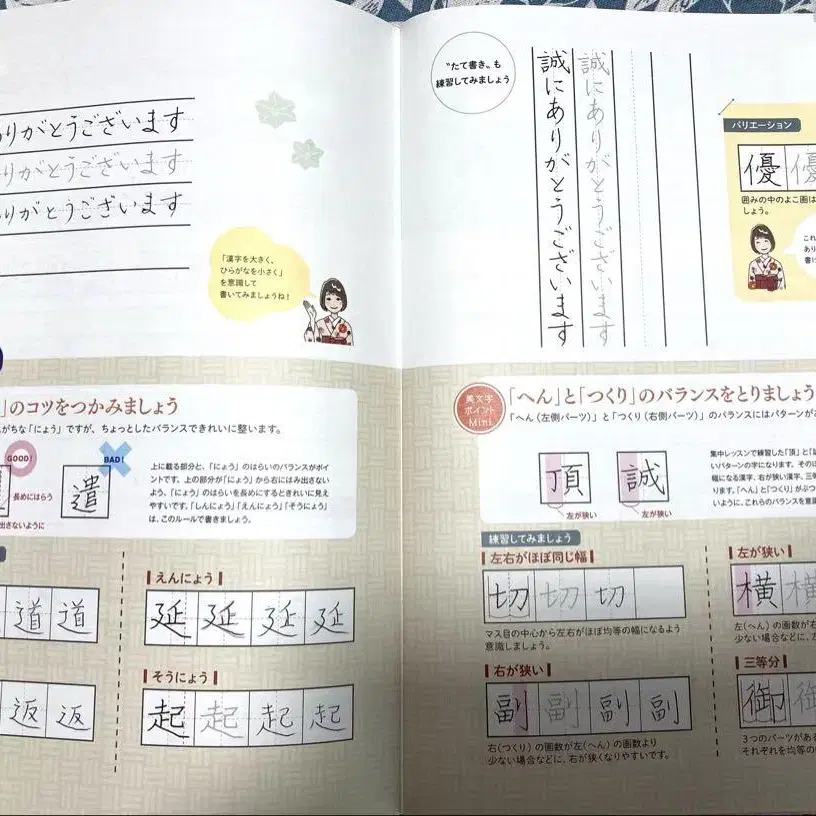 りがとうございます
りがとうございます
りがとうございます
「漢字を大きく、
ひらがなを小さく」
を意識して
書いてみましょうね!
」のコツをつかみましょう
がちな「にょう」ですが、ちょっとしたバランスできれいに整います。
GOOD!
長めにはらう
出さないように
BAD!
遣
上に載る部分と、「にょう」のはらいのバランスがポイ
ントです。上の部分が「にょう」から右にはみ出さない
よう、「にょう」のはらいを長めにするときれいに見え
やすいです。「しんにょう」「えんにょう」「そうにょう」
は、このルールで書きましょう。
道 道
返 返
えんにょう
延 延 延 延
そうにょう
起 起 起 起
“たて書き”も
練習してみましょう
誠にありがとうございます
誠にありがとうございます
バリエーション
優 優
囲みの中のよこ画は
しょう。
これ
あり
書け
美文字
ポイント
Mini
「へん」と「つくり」のバランスをとりましょう
「へん(左側パーツ)」と「つくり(右側パーツ)」のバランスにはパターンがあ
頂 誠
左が狭い 左が狭い
集中レッスンで練習した「頂」と「誠
いパターンの字になります。そのほ
幅になる漢字、右が狭い漢字、三等
ります。「へん」と「つくり」がぶつ
いように、これらのバランスを意識
練習してみましょう
左右がほぼ同じ幅
切 切 切
マス目の中心から左右がほぼ均等の幅になるよう
意識しましょう。
右が狭い
副 副 副 副
右(つくり)の画数が左(へん)の画数より
少ない場合などに、右が狭くなりやすいです。
左が狭い
横 横
左(へん)の画数が右
少ない場合などに、左
三等分
御 御
3つのパーツがある
それぞれを均等の